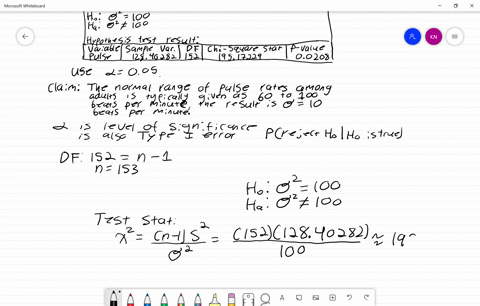 Microsoft Whiteboard
H₀: σ² = 100
Hₐ: σ² ≠ 100
Hypothesis test result:
Variable Sample Var. DF Chi-Square Stat P-value
Pulse 128.40282 152 195.17229 0.0208
Use α = 0.05.
Claim: The normal range of pulse rates among
adults is typically given as 60 to 100
beats per minute, the result is σ = 10
beats per minute.
α is level of significance
is also Type I error P(reject H₀ | H₀ is true)
DF: 152 = n - 1
n = 153
H₀: σ² = 100
Hₐ: σ² ≠ 100
Test Stat:
χ² = (n-1) S² / σ² = (152)(128.40282) / 100 ≈ 19
KN